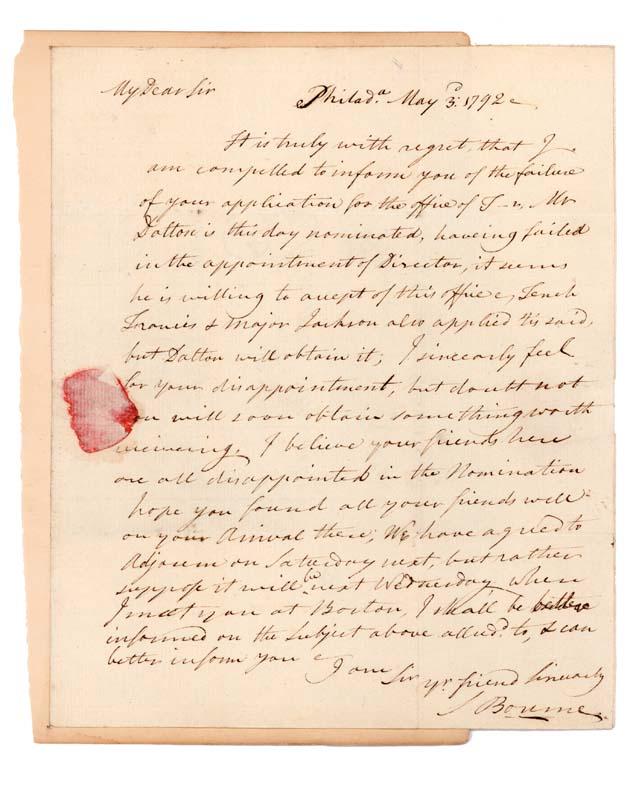 My Dear Sir
Philad.a May 3.d 1792
It is truly with regret, that I
am compelled to inform you of the failure
of your application for the office of T–r, Mr
Dalton is this day nominated, haveing failed
in the appointment of Director, it seems
he is willing to accept of this office, Tench
Francies & Major Jackson also applied tis said,
but Dalton will obtain it; I sincearly feel
for your disappointment, but doubt not
you will soon obtain something worth
receiveing. I believe your friends here
are all disappointed in the Nomination
hope you found all your friends well
on your Arrival there; We have agreed to
Adjourn on Saturday next, but rather
suppose it will be next Wednesday, when
I meet you at Boston, I shall be
informed on the subject above allud.d to, & can
better inform you
I am Sir yr. friend Sincearly
S Bourne